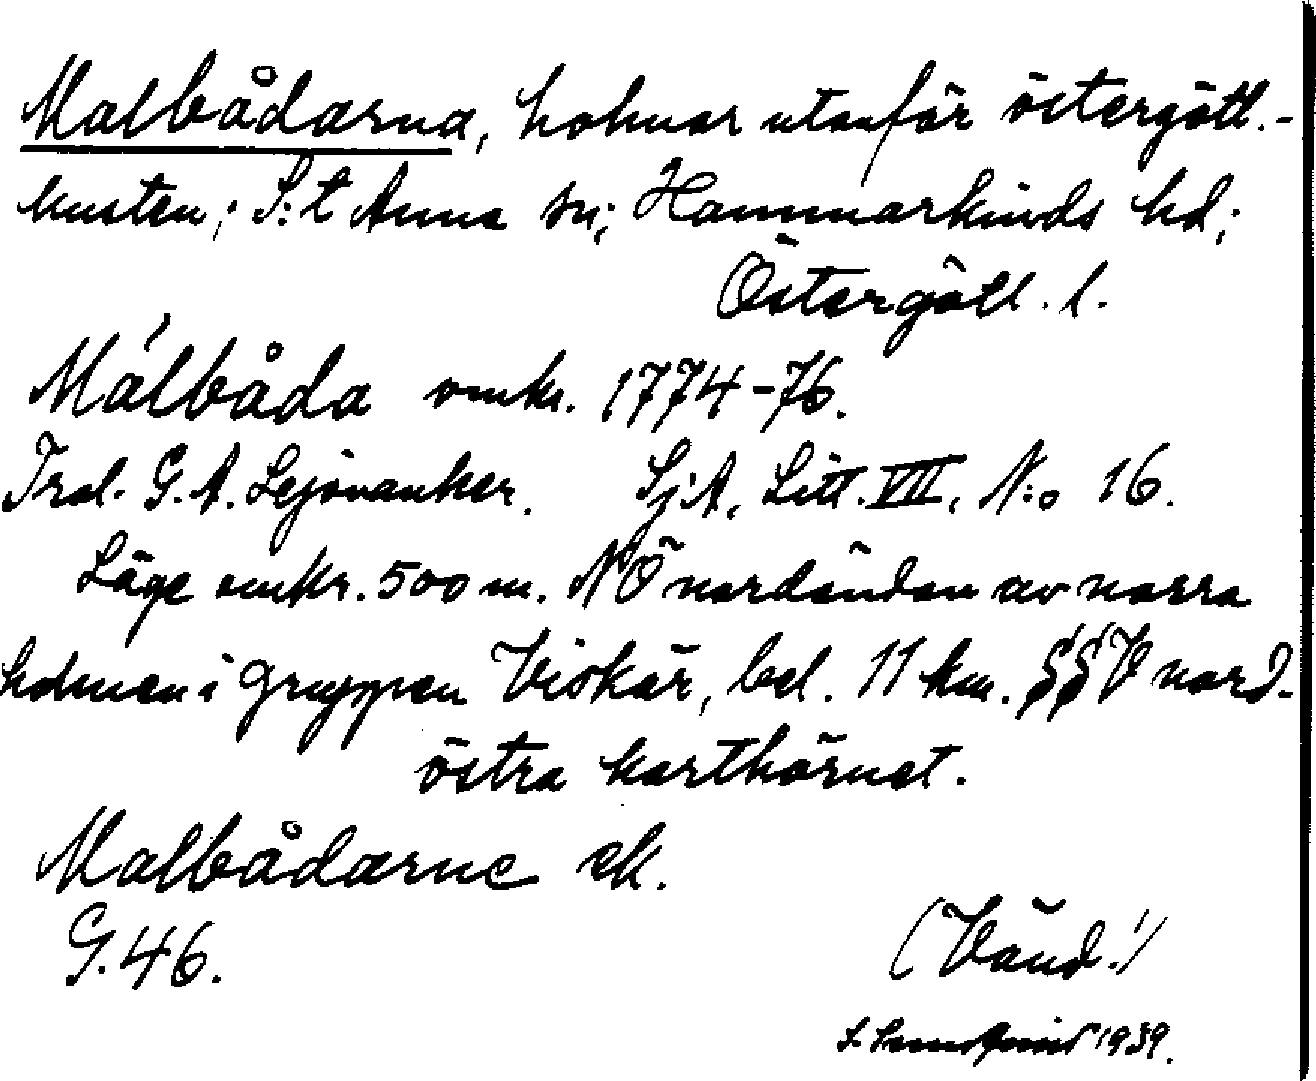 Malbådarna, holmar utanför östergötl.-
kusten; S:t Anna sn; Hammarkinds hd;
Östergötl. l.
Málbåda omkr. 1774-76.
Trol. G. A. Lejonanker. Sj:A. Litt. VII, N:o 16.
Läge omkr. 500 m. NÖ nordändan av norra
holmen i gruppen Viskär, bel. 11 km. SSV nord-
östra karthörnet.
Malbådarne ek.
G. 46.
(Vänd!)
1939.